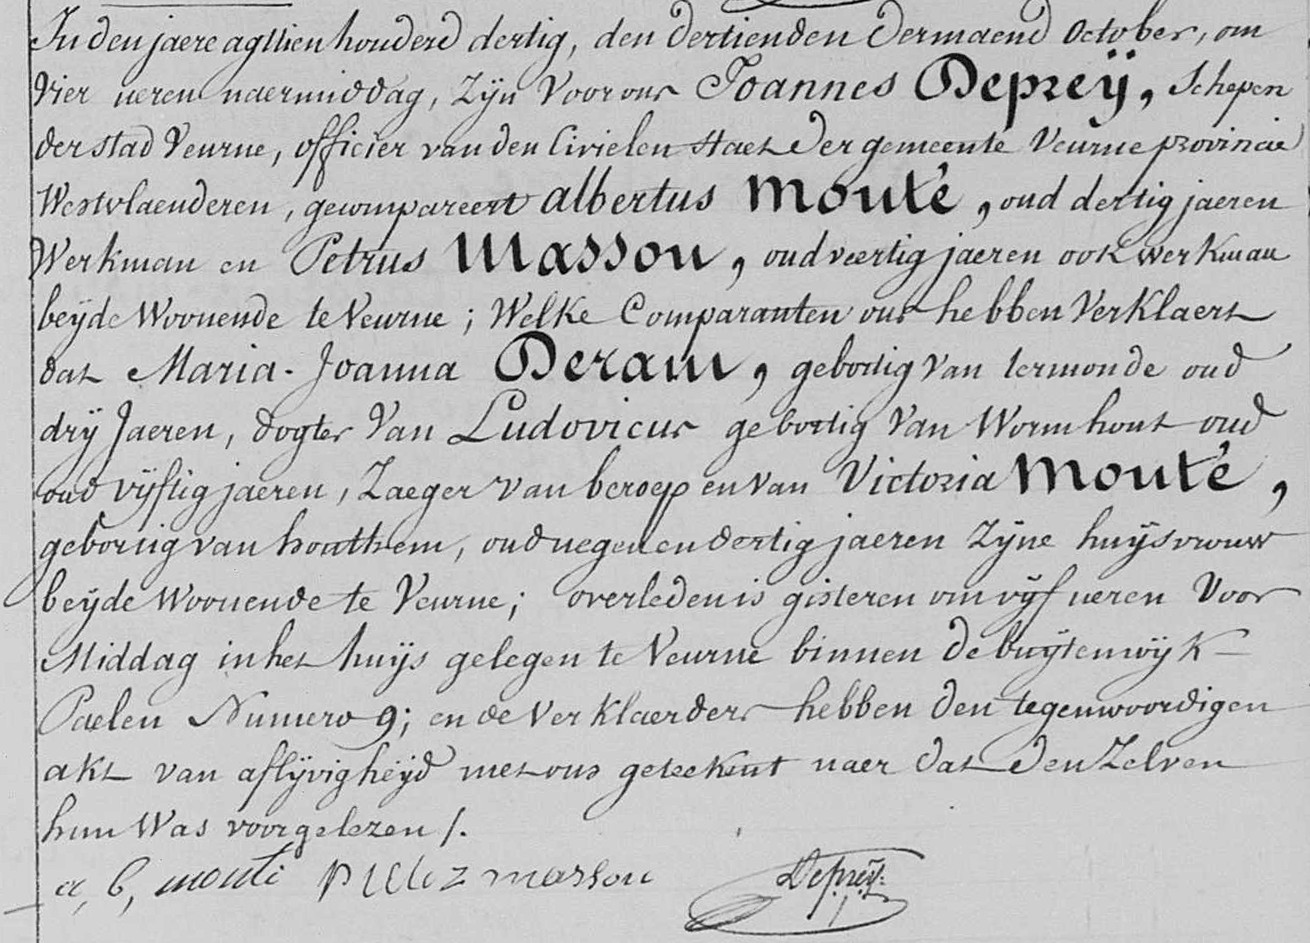 In den jaere agttien honderd dertig, den dertienden dermaend October, om
vier ueren naermiddag, Zyn Voor ons Joannes Depreÿ, Schepen
der stad Veurne, officier van den Civielen Staet der gemeente Veurne provincie
Westvlaenderen, gecompareert albertus Monté, oud dertig jaeren
Werkman en Petrus Masson, oud veertig jaeren ook werkman
beÿde Woonende te Veurne; Welke Comparanten ons hebben Verklaert
dat Maria-Joanna Deram, gebortig Van termonde oud
drÿ Jaeren, dogter Van Ludovicus gebortig Van Wormhout oud
oud vÿftig jaeren, Zaeger van beroep en van Victoria Monté,
gebortig van houthem, oud negenendertig jaeren Zÿne huÿsvrouw
beÿde Woonende te Veurne; overleden is gisteren om vÿf ueren Voor
Middag in het huÿs gelegen te Veurne binnen de buÿtenwÿk
Paelen Numero 9; en de Verklaerders hebben den tegenwoordigen
akt van aflÿvigheÿd met ons geteekent naer dat den Zelven
hun Was voorgelezen /.
a, b, monté masson Depreÿ